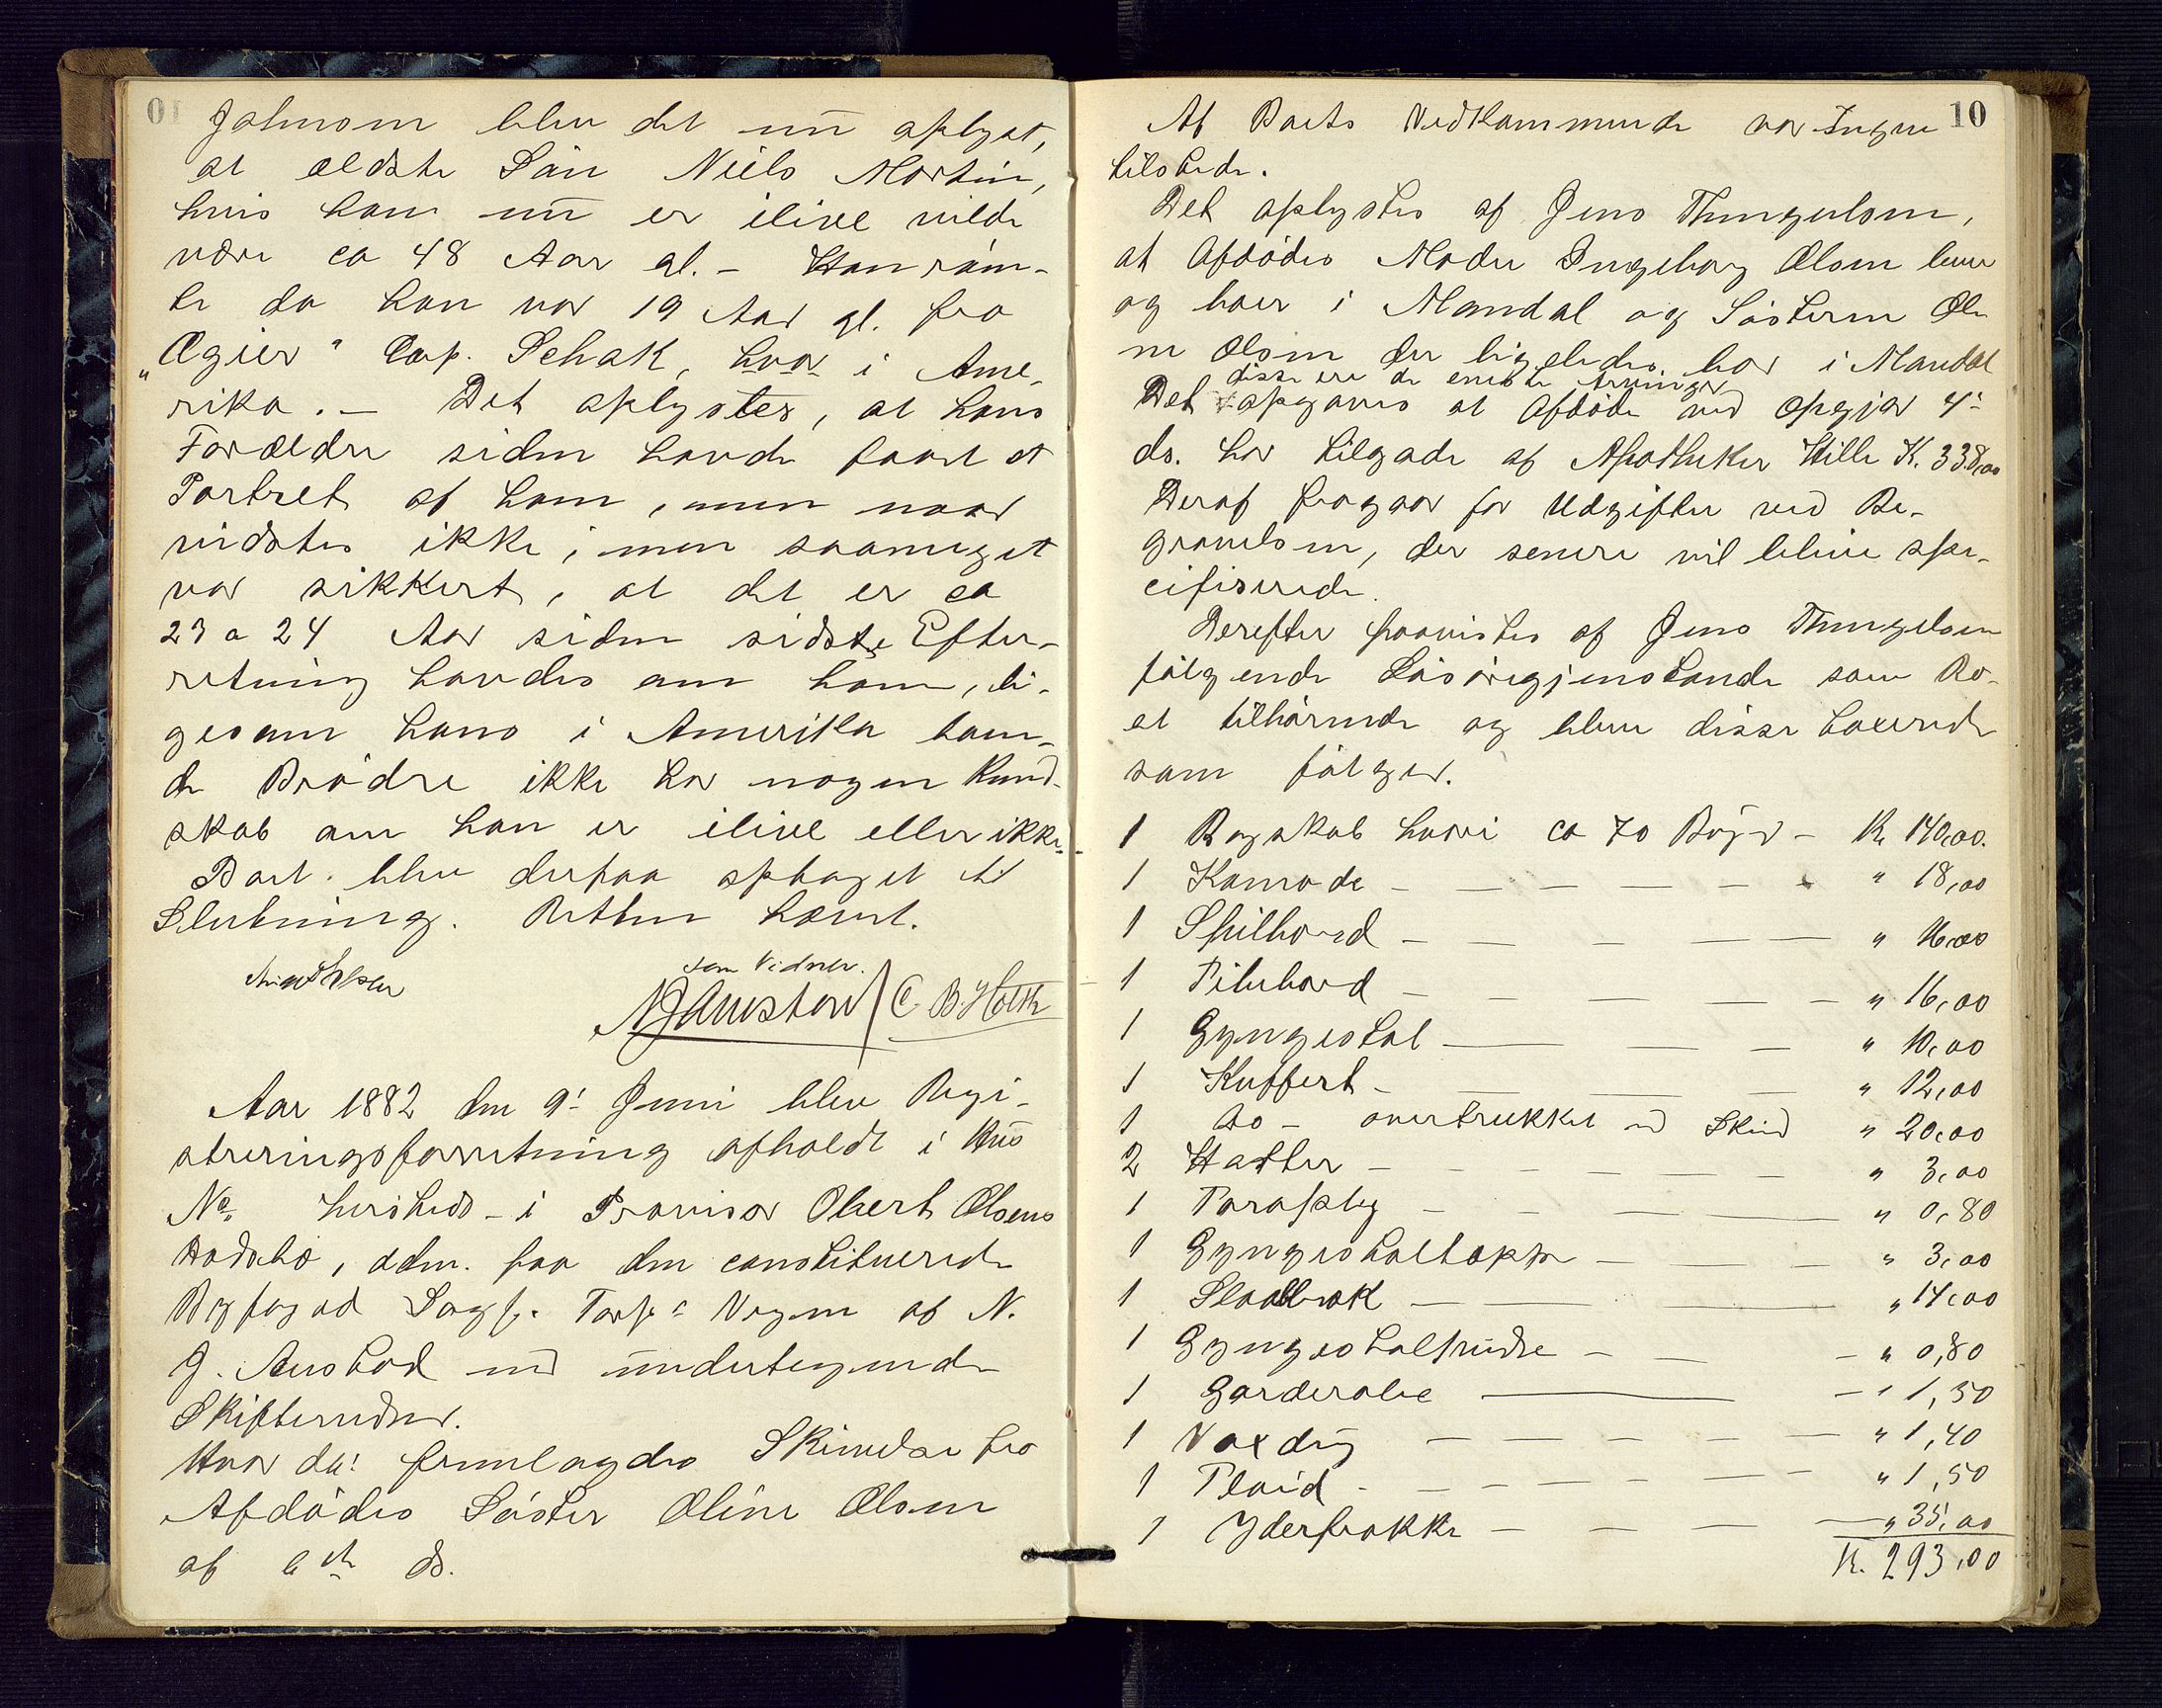 Johnsom blev det nu oplyst,
at ældste Sön Niels Martin,
hvis han nu er ilive vilde
være ca 48 Aar gl. - Han röm-
te da han var 19 Aar gl. fra
"Ægier" Cap. Schak, hvor i Ame-
rika. - Det oplystes, at hans
Forældre siden havde faaet et
Portræt af ham, men naar
vidstes ikke; men saameget
var sikkert, at det er ca
23 a 24 Aar siden sidste Efter-
retning havdes om ham, li-
gesom hans i Amerika boen-
de Brödre ikke har nogen Kund-
skab om han er ilive eller ikke.
Boet blev derpaa optaget til
Slutning. Retten hævet.
som Vidner.
N J Aanstad / C. B. Holth
Aar 1882 den 9' Juni blev Regi-
streringsforretning afholdt i Hus
No. hersteds - i Provisor Obert Olsens
Dödsbo, adm. paa den constituerede
Byfoged Sagf. Torps Vegne af N.
J. Aanstad med undertegnede
Skiftevidner.
Hvor da: fremlagdes Skrivelse fra
Afdödes Söster Oline Olsen
af 6te ds.
10
Af Boets Vedkommende var Ingen
tilstede.
Det oplystes af Jens Thengelsen,
at Afdödes Moder Ingeborg Olsen lever
og boer i Mandal og Sösteren Oli
ne Olsen der ligeledes bor i Mandal
disse ere de eneste Arvinger
Det opgaves at Afdöde ved Opgjör 4'
ds. har tilgode af Apotheker Hille K. 338,00
Deraf fragaar for Udgifter ved Be-
gravelsen, der senere vil blive spe-
cifiserede.
Derefter paavistes af Jens Thengelsen
fölgende Lösöregjenstande som Bo-
et tilhörende og blev disse taxerede
som fölger.
1 Bogskab hvori ca 70 Böger - K. 140,00.
1 Komode - - - - - - " 18,00
1 Spillbord - - - - - " 16,00
1 Pibebord - - - - - " 16,00
1 Gyngestol - - - " 10,00
1 Kuffert - - - - " 12,00
1 do - overtrukket m Skind " 20,00
2 Hatter - - - - - " 3,00
1 Paraply - - - - " 0,80
1 Gyngestoltæppe - - - " 3,00
1 Slaabrok - - - " 14,00
1 Gyngestolspude - - - " 0,80
1 Garderobe - - " 1,50
1 Voxdug - - - - - " 1,40
1 Plaid - - - - - " 1,50
1 Yderfrakke - - - - " 35,00
K. 293,00